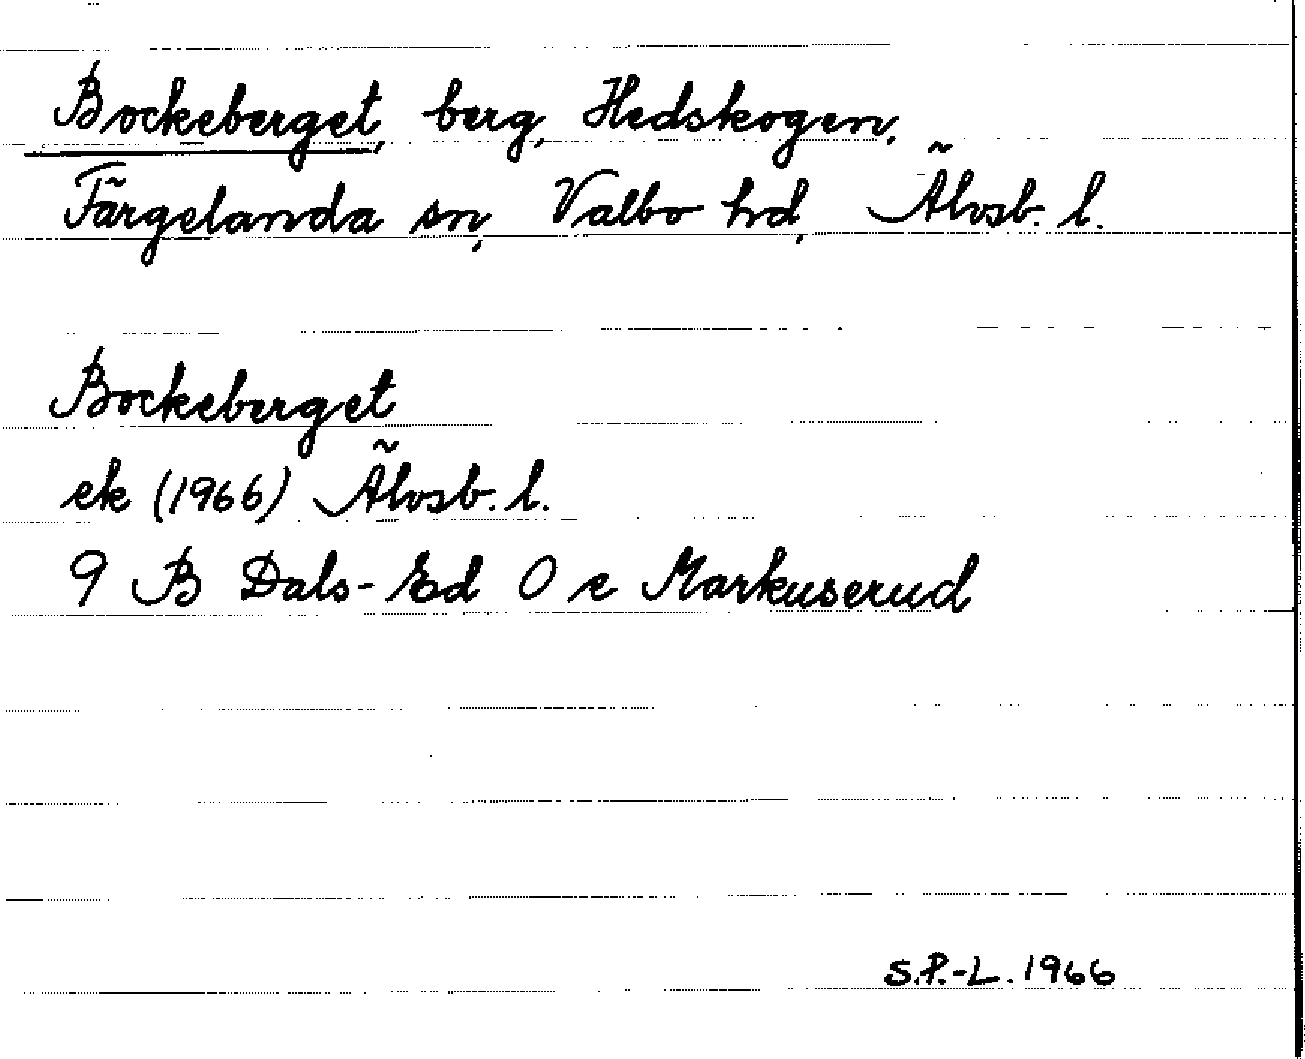 Bockeberget, berg, Hedskogen,
Färgelanda sn, Valbo hd, Älvsb. l.
Bockeberget
ek (1966) Älvsb. l.
9 B Dals-Ed O c Markuserud
S.P.-L. 1966